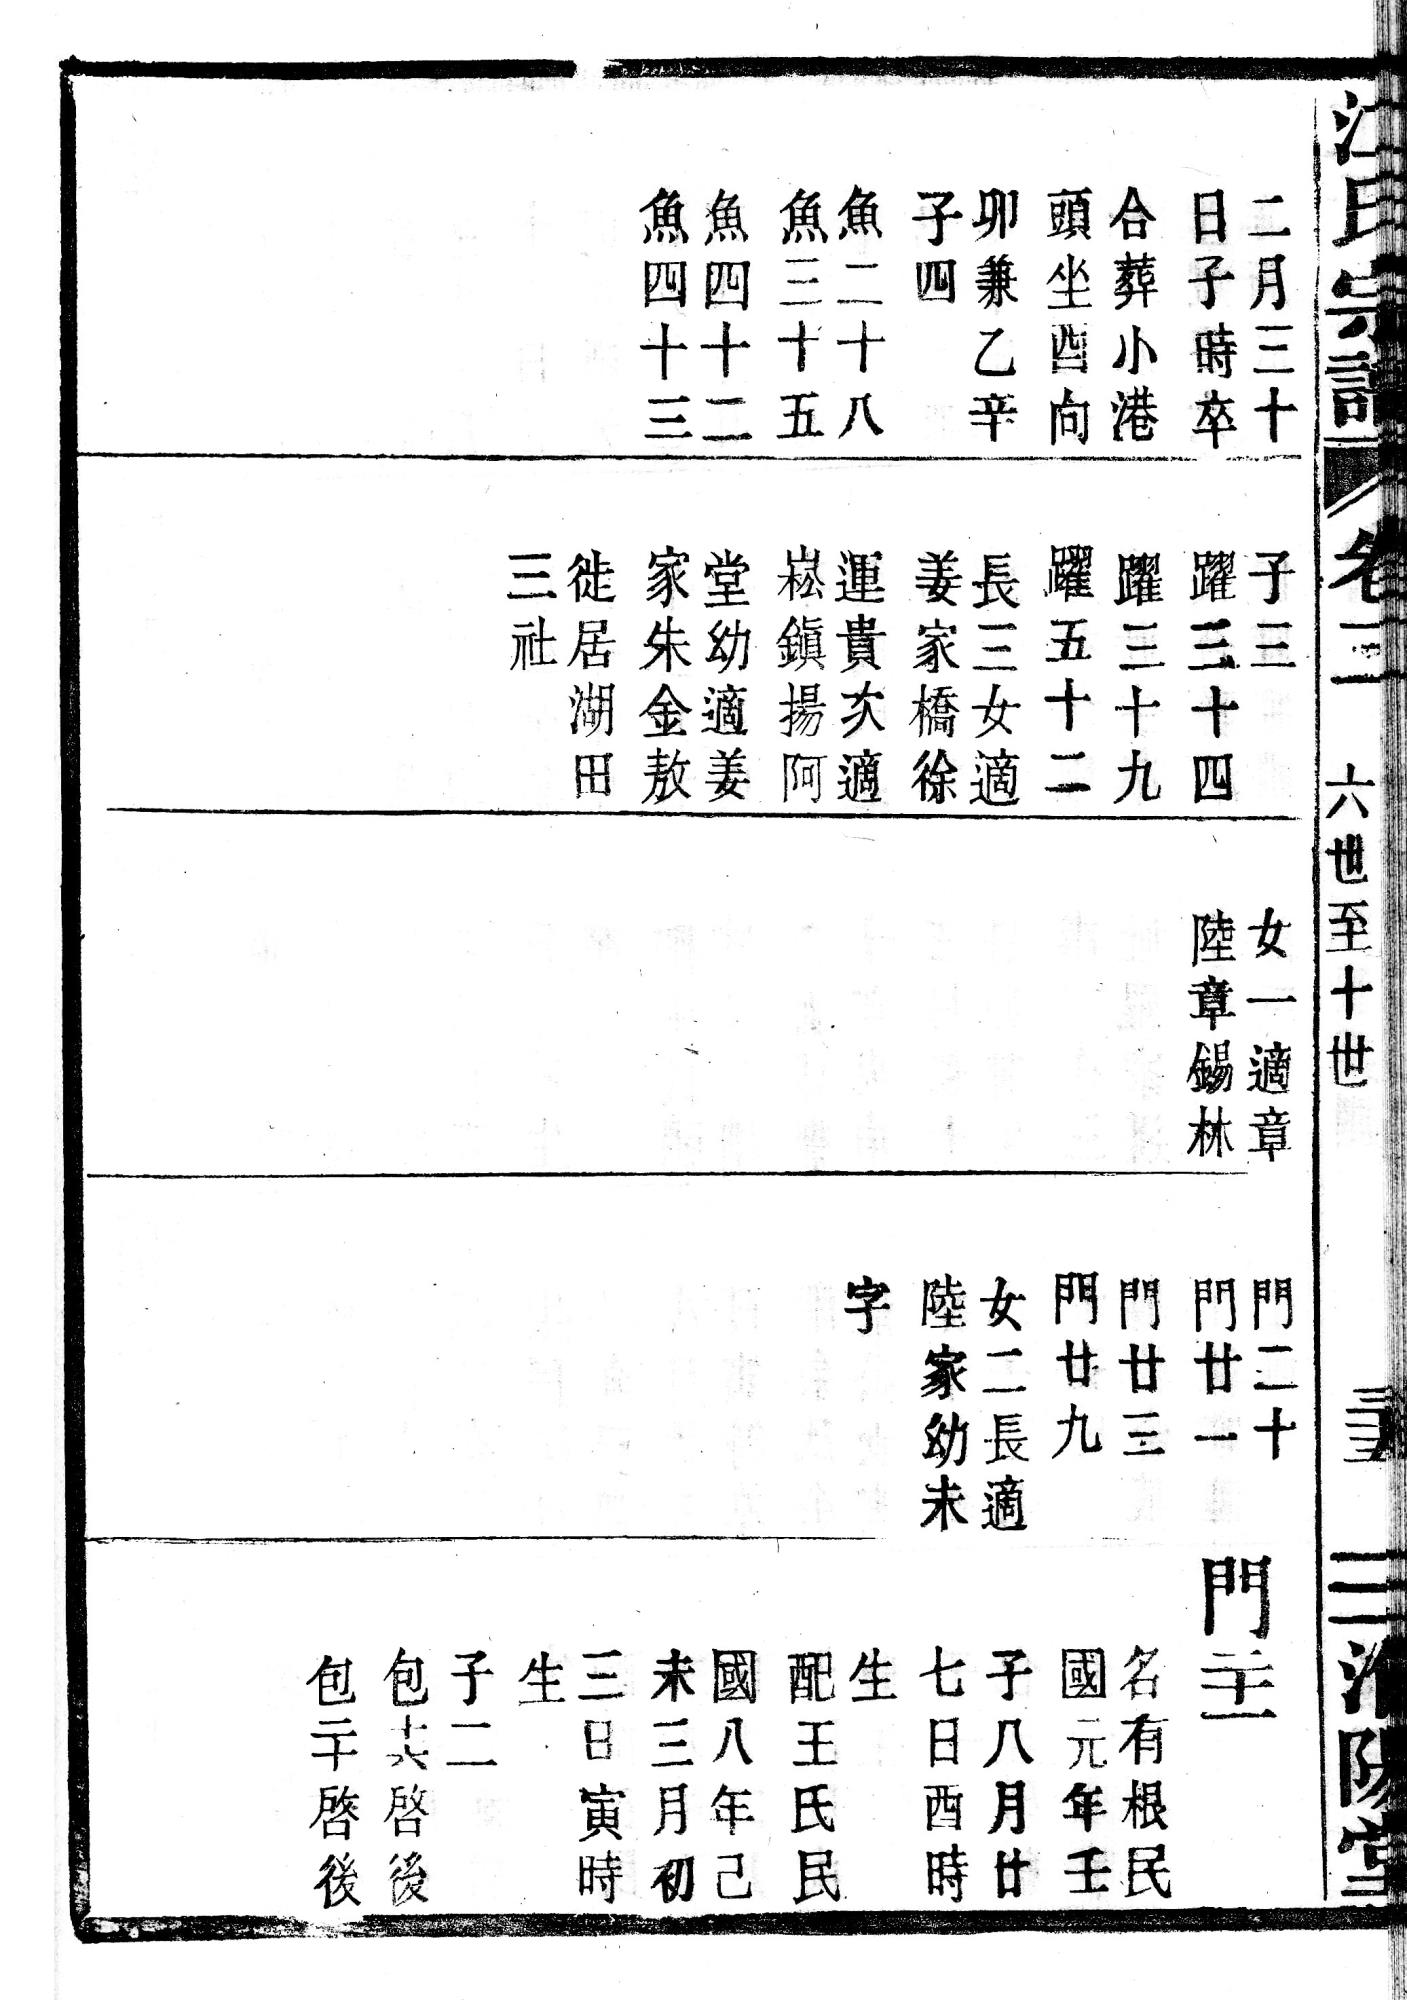 江氏宗譜
卷三
六世至十世
淮陽堂
二月三十
日子時卒
合葬小港
頭坐酉向
卯兼乙辛
子四
魚二十八
魚三十五
魚四十二
魚四十三
子三
躍三十四
躍三十九
躍五十二
長三女適
姜家橋徐
運貴次適
崧鎮揚阿
堂幼適姜
家朱金敖
徙居湖田
三社
女一適章
陸章錫林
門二十
門廿一
門廿三
門廿九
女二長適
陸家幼未
字
門二十一
名有根民
國元年壬
子八月廿
七日酉時
生
配王氏民
國八年己
未三月初
三日寅時
生
子二
包十六啓後
包二十啓後